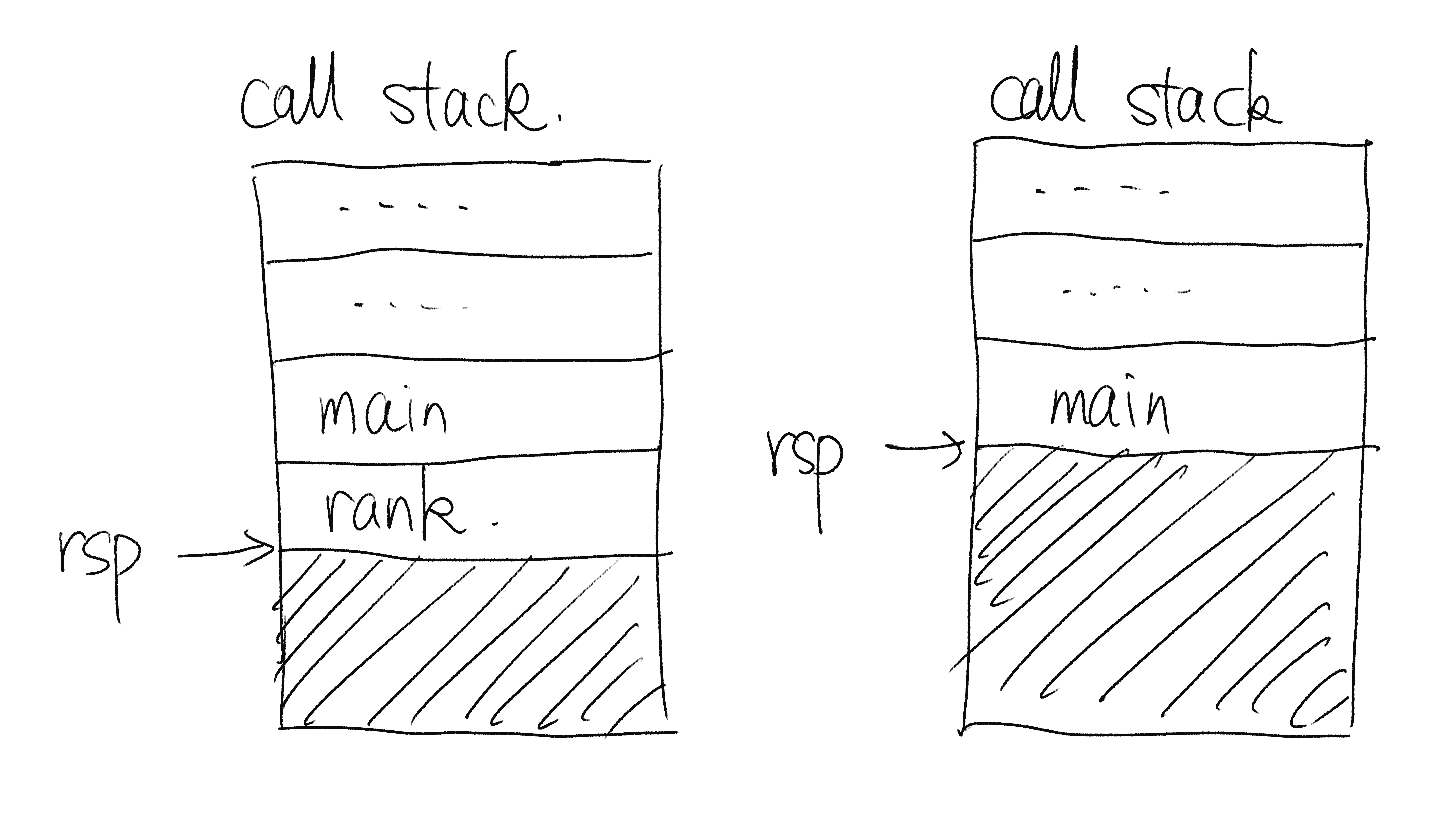 call stack.
- - - -
- - - -
main
rank.
rsp
call stack
- - - -
- - - - -
main
rsp